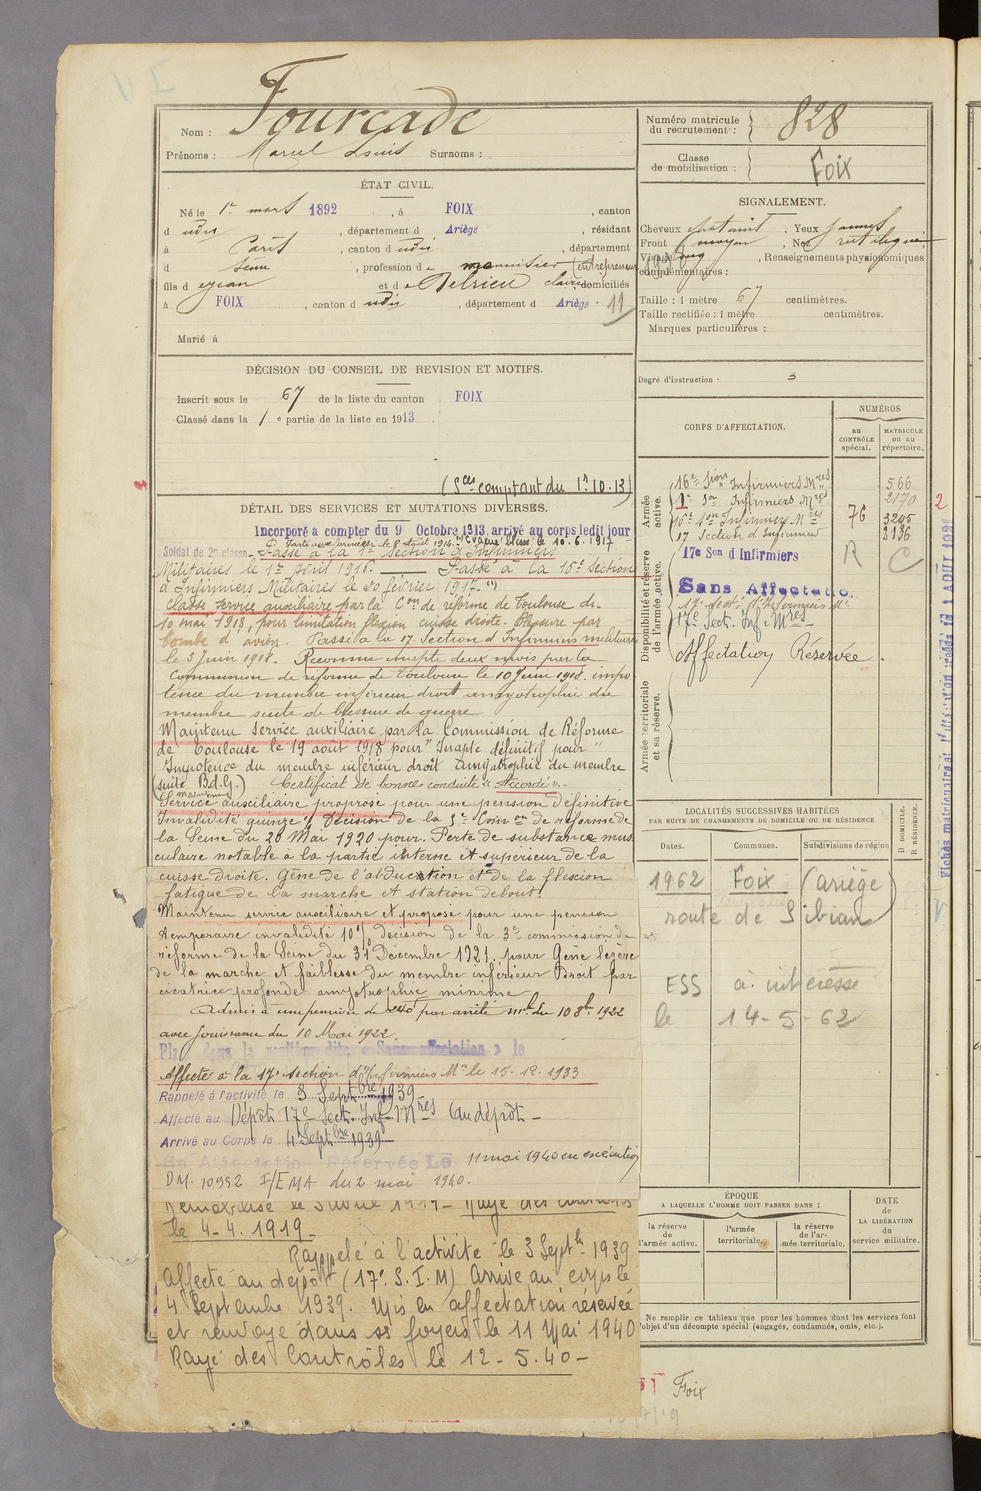 Nom : Fourcade
Prénoms : Marcel Louis Surnoms :
ÉTAT CIVIL.
Né le 1er mars 1892, à FOIX, canton
d udit, département d Ariège, résidant
à Paris, canton d udit, département
d Seine, profession de menuisier (entrepreneur
fils d e Jean et de Delrieu Claire domiciliés
à FOIX, canton d udit, département d Ariège. 11
Marié à
DÉCISION DU CONSEIL DE REVISION ET MOTIFS.
Inscrit sous le 67 de la liste du canton FOIX
Classé dans la 1e partie de la liste en 1913.
(Sces comptant du 1er.10.13)
DÉTAIL DES SERVICES ET MUTATIONS DIVERSES.
Incorporé à compter du 9 Octobre 1913, arrivé au corps ledit jour
Parti aux armées le 8 Août 1914. Evacué blessé le 10.6.1917
Soldat de 2e classe. Passé à la 1e Section d'Infirmiers
Militaires le 1er Avril 1916. — Passé à la 15e Section
d'Infirmiers Militaires le 20 février 1917.
Classé service auxiliaire par la Con de réforme de Toulouse du
10 mai 1918, pour limitation flexion cuisse droite. Blessure par
bombe d'avion. Passé à la 17. Section d'Infirmiers militaires
le 3 Juin 1918. Reconnu inapte deux mois par la
Commission de réforme de Toulouse le 10 Juin 1918. impo-
tence du membre inférieur droit amyotrophie du
membre suite de blessure de guerre
Maintenu service auxiliaire par la Commission de Réforme
de Toulouse le 19 août 1918 pour "Inapte définitif pour"
Impotence du membre inférieur droit Amyotrophie du membre
(suite B.d.G.) Certificat de bonne conduite "Accordé".
maintenu
Service auxiliaire proposé pour une pension définitive
Invalidité quinze % Décision de la 3e Comon de réforme de
la Seine du 26 Mai 1920 pour. Perte de substance mus
culaire notable à la partie interne et supérieur de la
cuisse droite. Gêne de l'abduction et de la flexion
fatigue de la marche et station debout.
Maintenu service auxiliaire et proposé pour une pension
temporaire invalidité 10% décision de la 3e commission de
réforme de la Seine du 31 Décembre 1921. pour Gêne légère
de la marche et faiblesse du membre inférieur Droit par
cicatrice profonde amyotrophie minime
Admis à une pension de 240f par arrêté ml du 10 8bre 1922
avec Jouissance du 10 Mai 1922.
Placé dans la position dite « Sans affectation » le
Affecté à la 17e Section d'Infirmiers Mre le 15-12-1933
Rappelé à l'activité le 3 Septbre 1939
Affecté au Dépôt 17e Sect. Inf. Mres (au dépôt –
Arrivé au Corps le 4 Septbre 1939
En Affectation Réservée Le 11 mai 1940 en exécution
DM. 10992 I/EMA du 2 mai 1940.
le 4-4.1919
Rappelé à l'activité le 3 Septb 1939
affecté au dépôt (17e S.I.M) Arrivé au corps le
4 Septembre 1939. Mis en affectation réservée
et renvoyé dans ses foyers le 11 Mai 1940
Rayé des Contrôles le 12-5.40–
Numéro matricule du recrutement : 828
Classe de mobilisation : Foix
SIGNALEMENT.
Cheveux chatains, Yeux jaunes
Front moyen, Nez rectiligne
Visage long, Renseignements physionomiques
complémentaires :
Taille : 1 mètre 67 centimètres.
Taille rectifiée : 1 mètre centimètres.
Marques particulières :
Degré d'instruction : 3
CORPS D'AFFECTATION.
NUMÉROS
AU CONTRÔLE spécial.
MATRICULE ou au répertoire.
Armée active.
16e Sion Infirmiers Mres 566
1e Son Infirmiers Mres 2170 2
15e Son Infirmiers Mres 76 3205
17 Section d'Infirmiers 3136
Disponibilité et réserve de l'armée active.
17e Son d'Infirmiers R C
Sans Affectatio.
17e Sect. d'Infirmiers Mre
17e Sect. Inf. Mres
Affectation Réservée.
Armée territoriale et sa réserve.
LOCALITÉS SUCCESSIVES HABITÉES
PAR SUITE DE CHANGEMENTS DE DOMICILE OU DE RÉSIDENCE
Dates. Communes. Subdivisions de région
D DOMICILE. R RÉSIDENCE.
1962 Foix (Ariège)
route de S
ESS à intéressé
le 14-5-62
ÉPOQUE
A LAQUELLE L'HOMME DOIT PASSER DANS :
la réserve de l'armée active.
l'armée territoriale.
la réserve de l'armée territoriale.
DATE de LA LIBÉRATION du service militaire.
Ne remplir ce tableau que pour les hommes dont les services font
l'objet d'un décompte spécial (engagés, condamnés, omis, etc.).
Foix